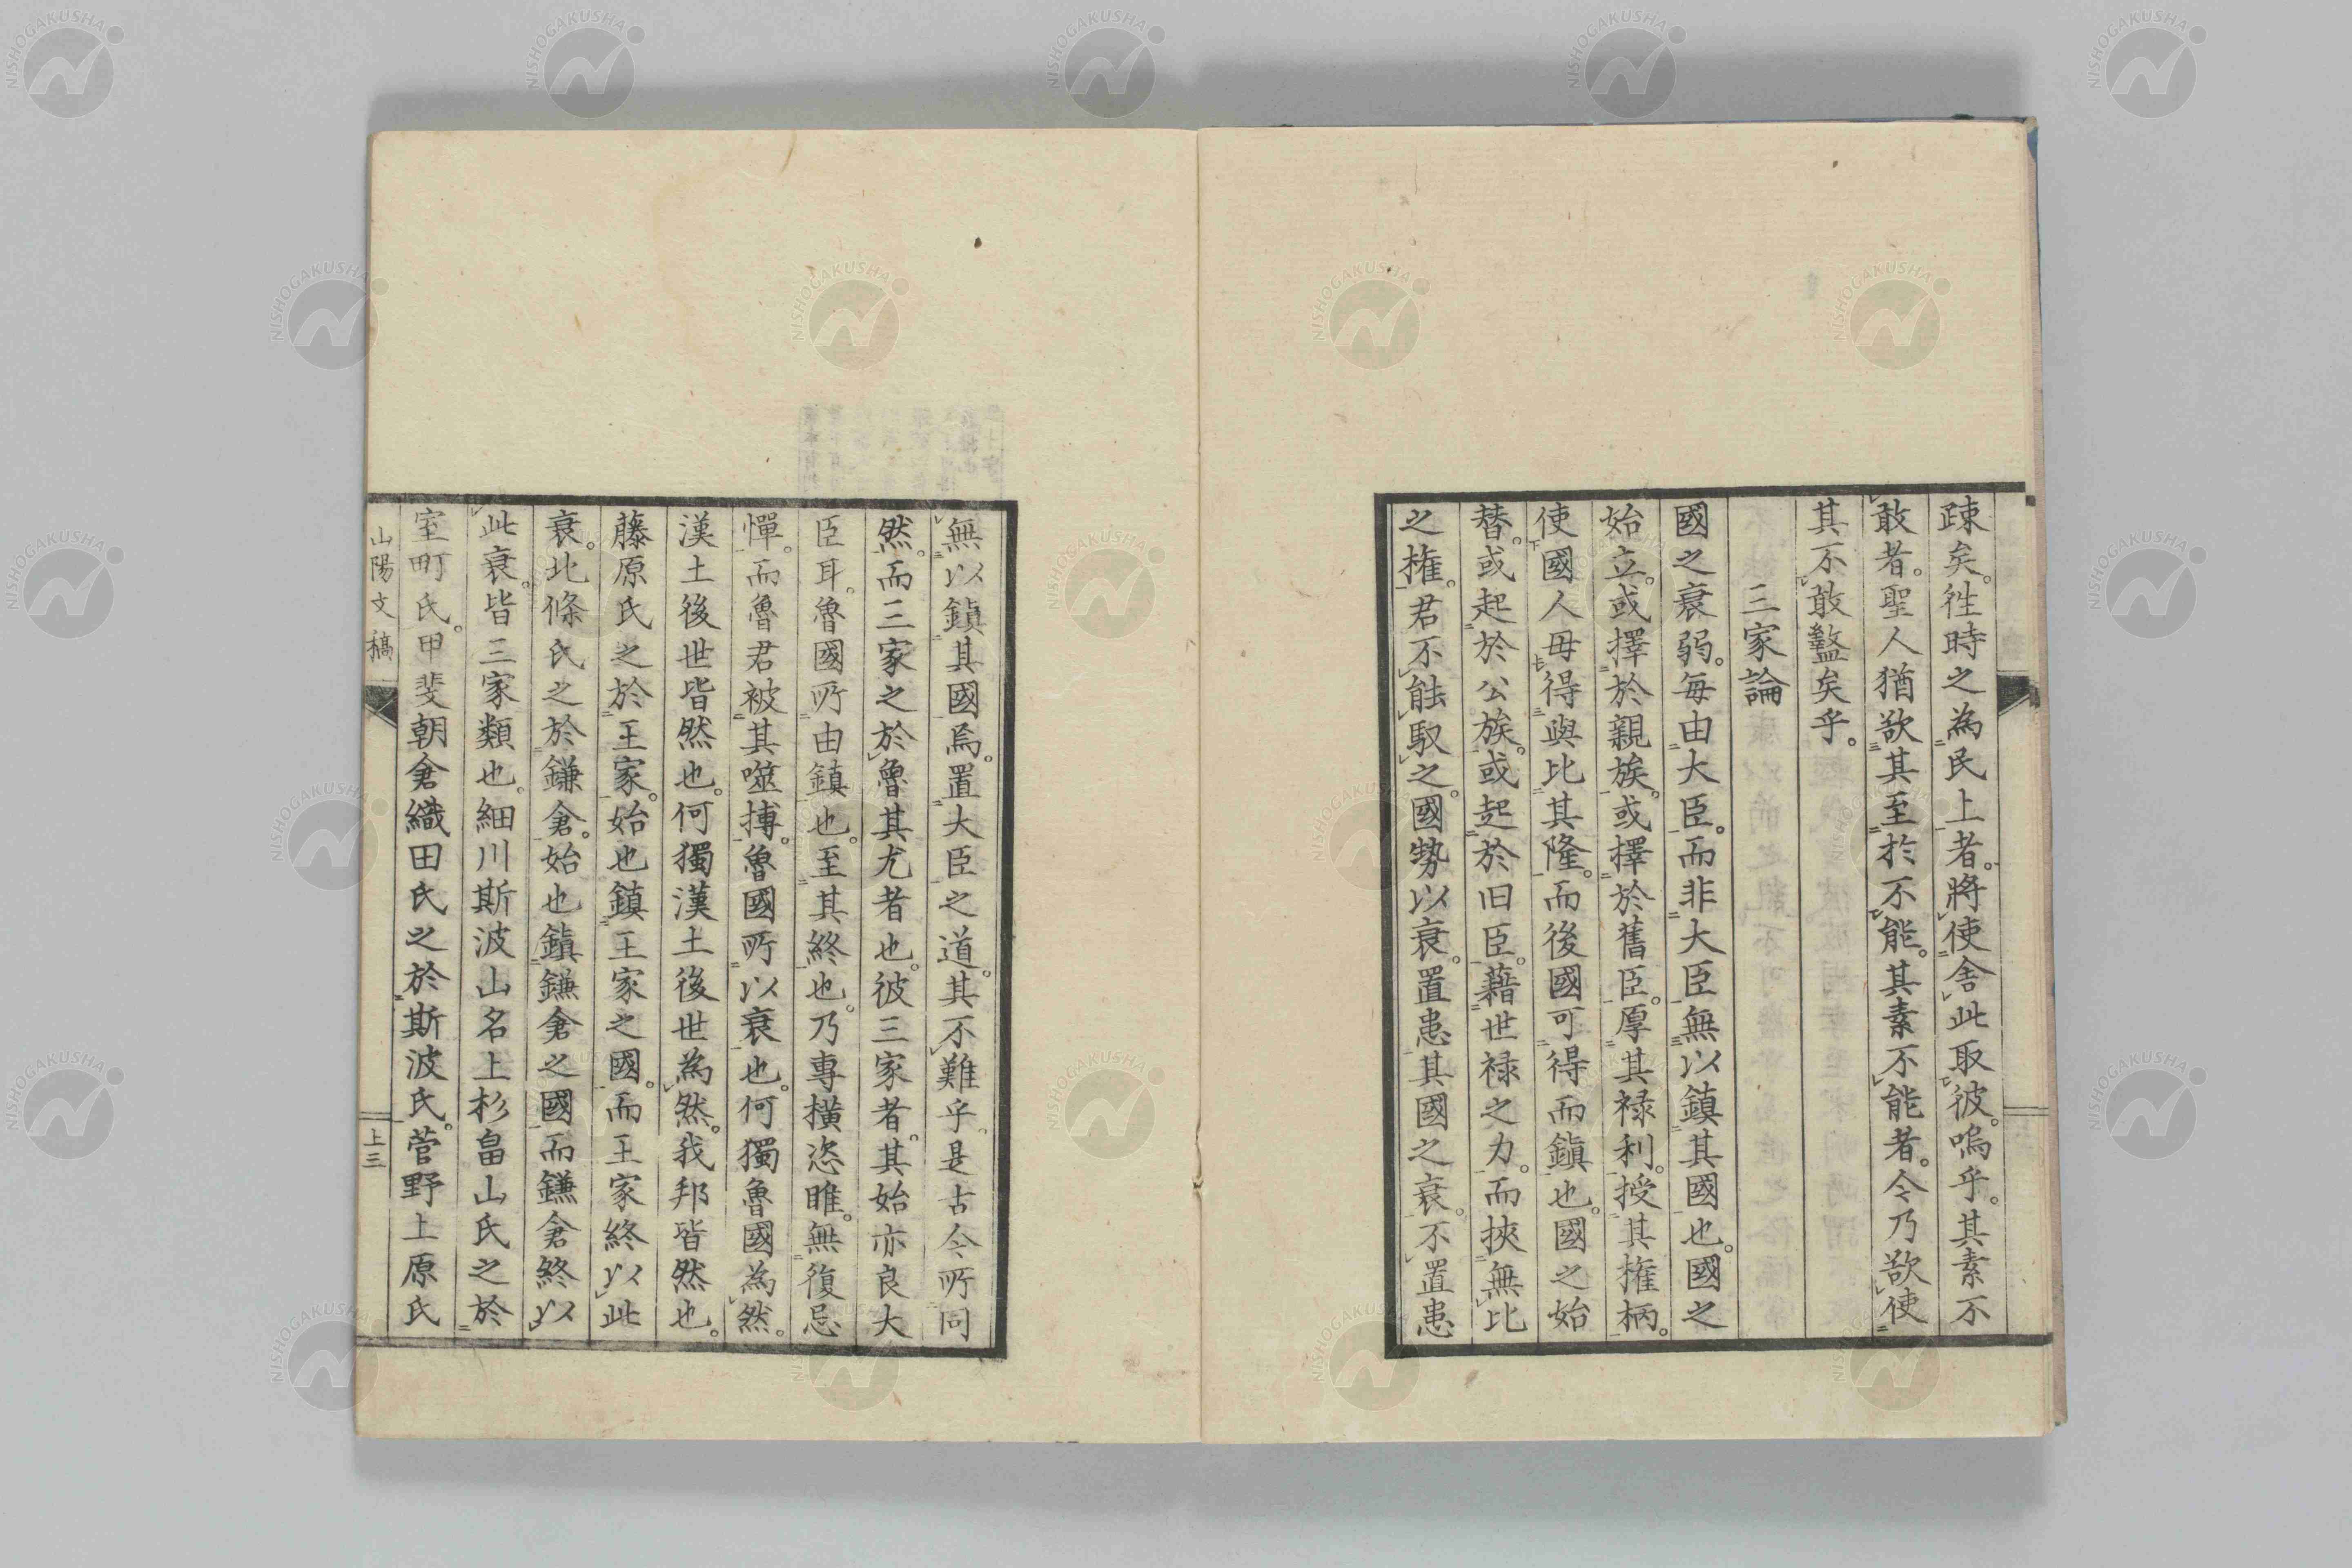 疎矣。徃時之為民上者。將使舎此取彼。嗚乎。其素不
敢者。聖人猶欲其至於不能。其素不能者。今乃欲使
其不敢盭矣乎。
三家論
國之衰弱。每由大臣。而非大臣無以鎮其國也。國之
始立。或擇於親族。或擇於舊臣。厚其禄利。授其権柄。
使國人毋得與比其隆。而後國可得而鎮也。國之始
替。或起於公族。或起於旧臣。藉世禄之力。而挾無比
之権。君不能馭之。國勢以衰。置患其國之衰。不置患
無以鎮其國焉。置大臣之道。其不難乎。是古今所同
然。而三家之於魯其尤者也。彼三家者。其始亦良大
臣耳。魯國所由鎮也。至其終也。乃專横恣睢。無復忌
憚。而魯君被其噬搏。魯國所以衰也。何獨魯國為然。
漢土後世皆然也。何獨漢土後世為然。我邦皆然也。
藤原氏之於王家。始也鎮王家之國。而王家終以此
衰。北條氏之於鎌倉。始也鎮鎌倉之國。而鎌倉終以
此衰。皆三家類也。細川斯波山名上杉畠山氏之於
室町氏。甲斐朝倉織田氏之於斯波氏。菅野上原氏
山陽文稿
上三
NISHOGAKUSHA